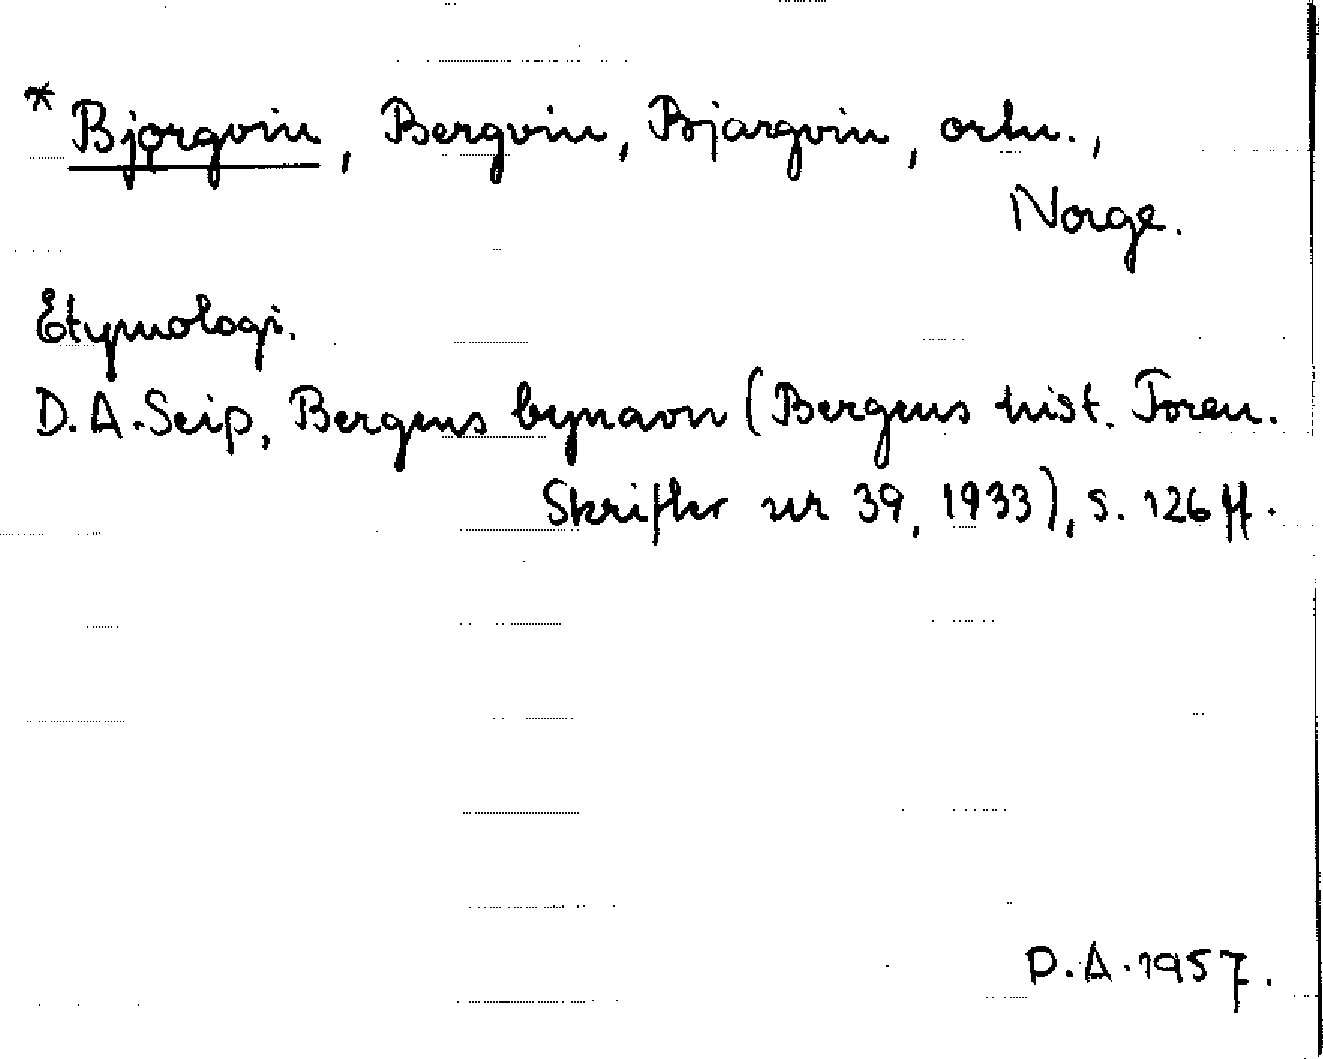 * Bjǫrgvin, Bergvin, Bjargvin, ortn.,
Norge.
Etymologi.
D.A. Seip, Bergens bynavn (Bergens hist. Foren.
Skrifter nr 39, 1933), s. 126 ff.
P.A. 1957.